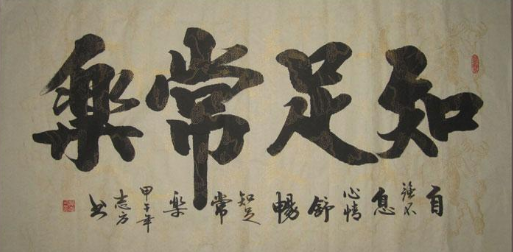 知足常樂
自強不息心情舒暢知足常樂
甲午年志方書